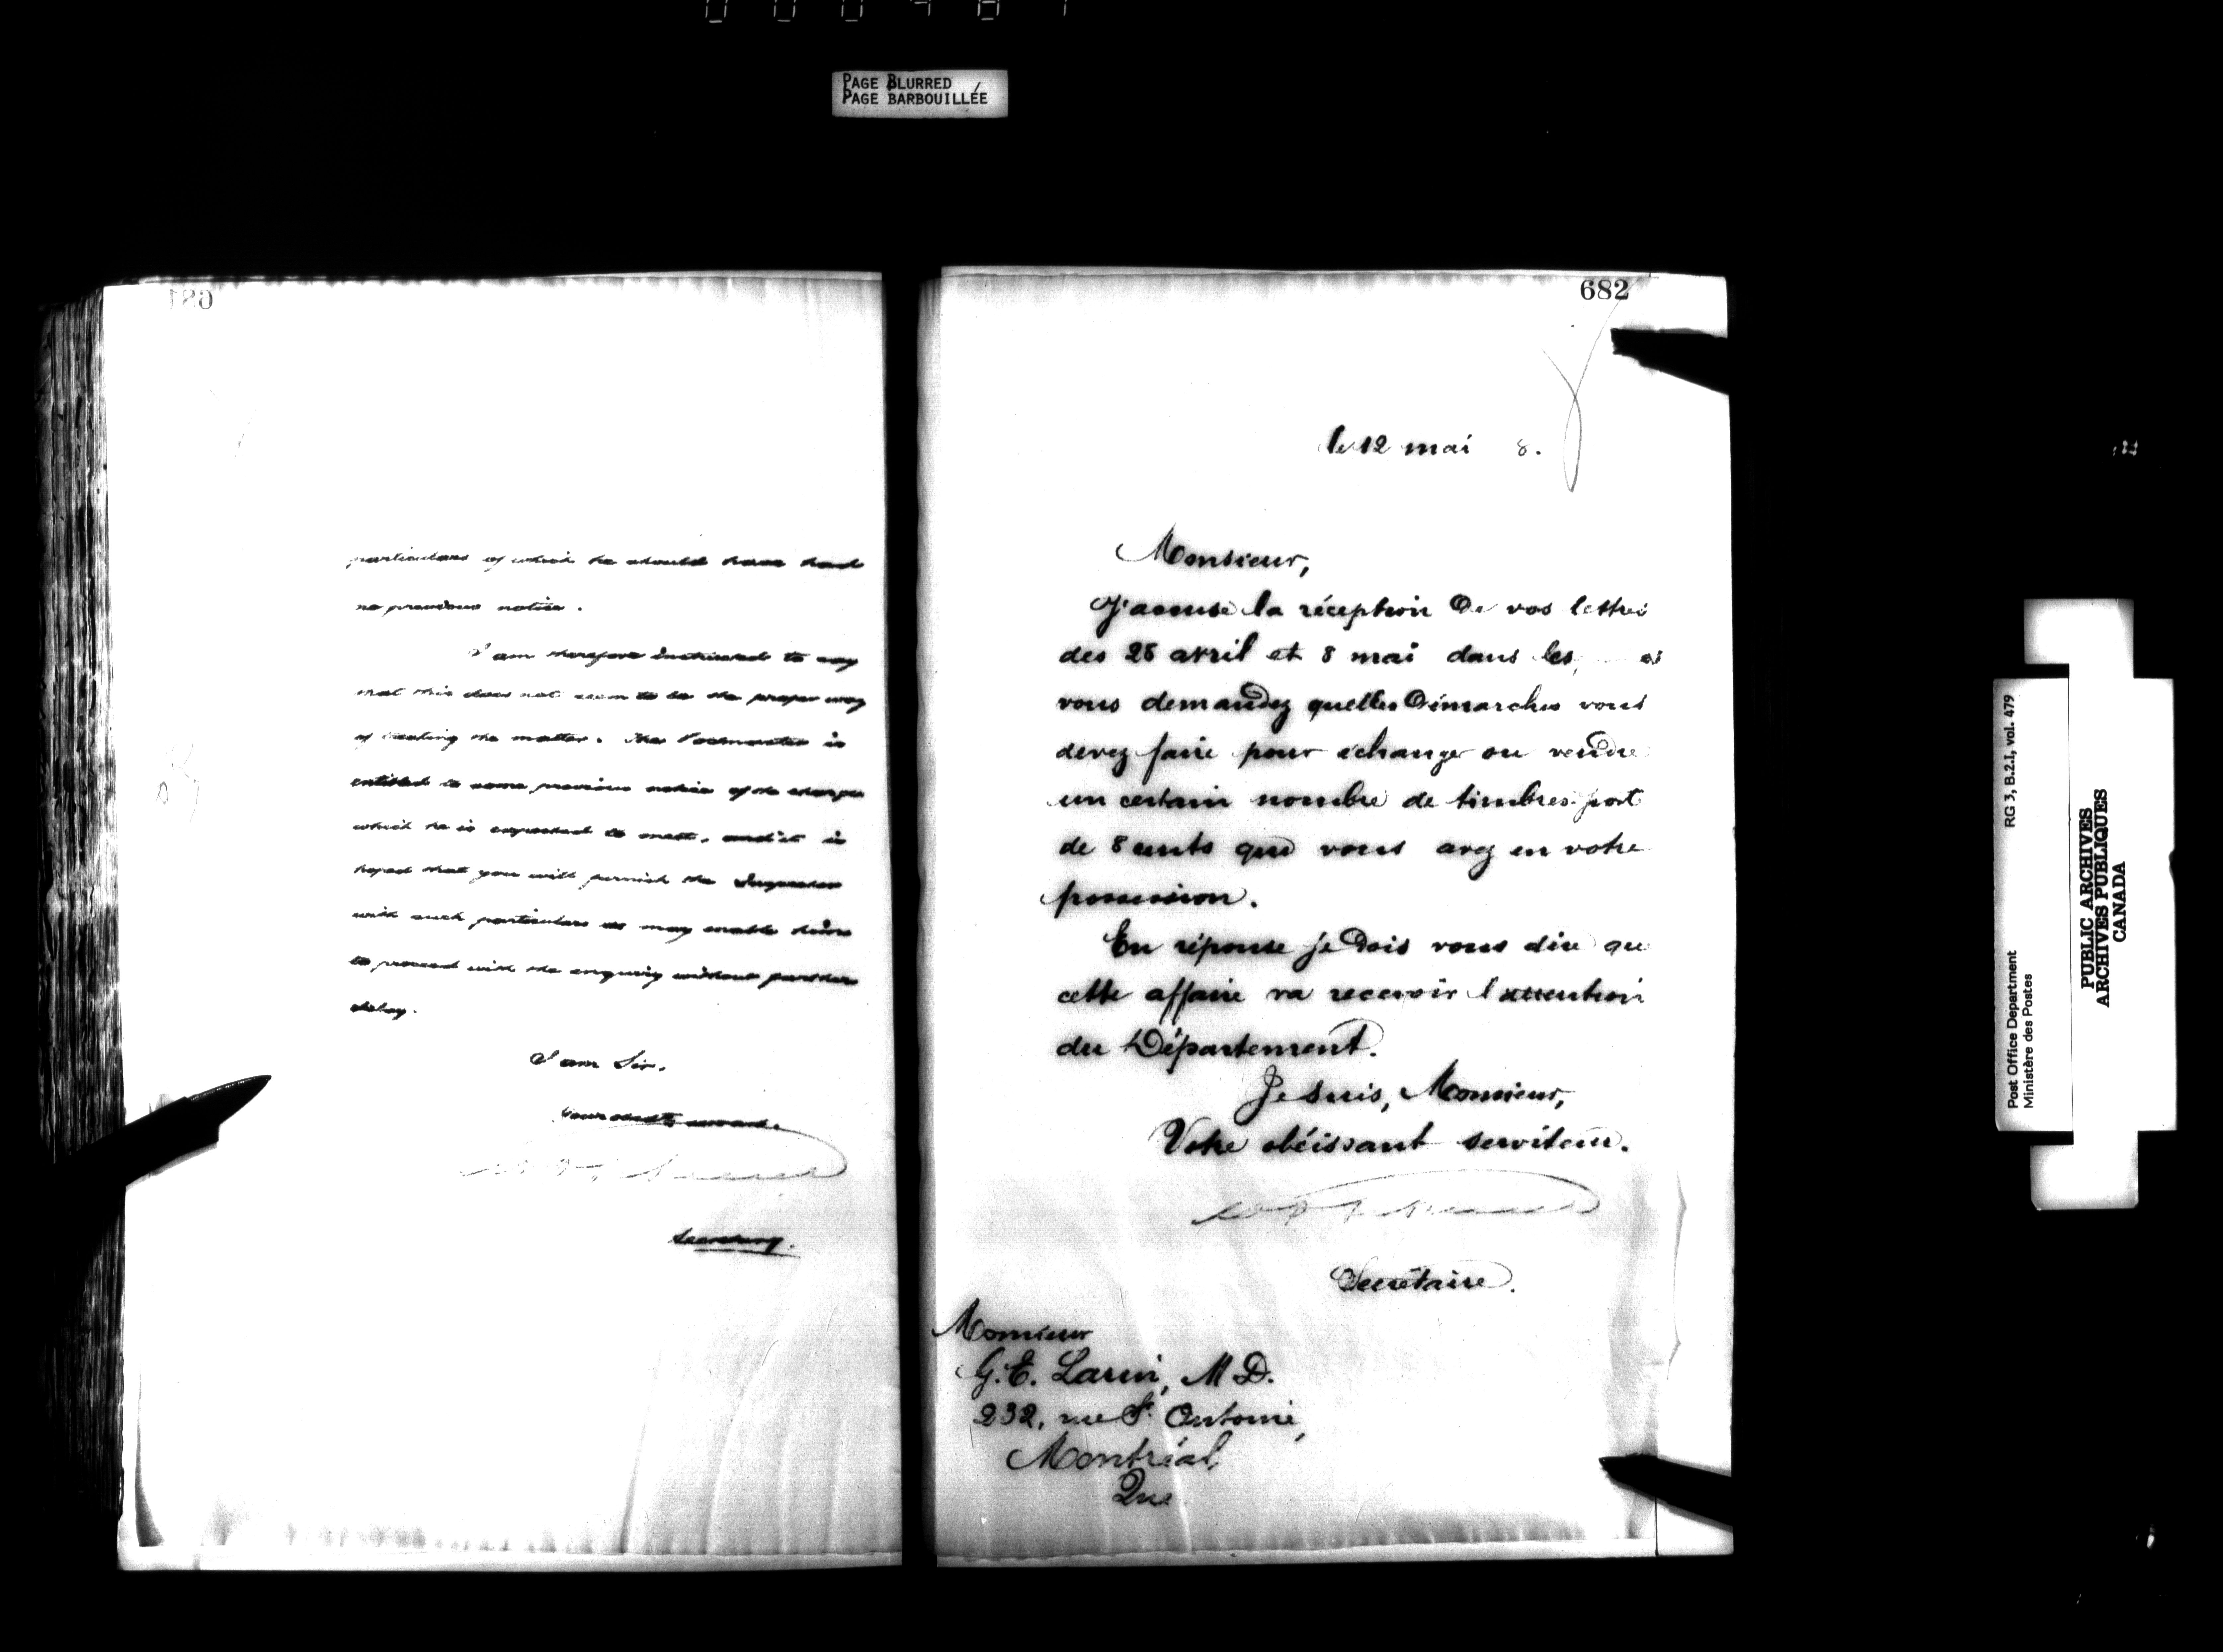 PAGE BLURRED
PAGE BARBOUILLÉE
681
particulars of which he should have had
no previous notice.
I am therefore instructed to say
that this does not seem to be the proper way
of treating the matter. The Postmaster is
entitled to some previous notice of the charges
which he is expected to meet, and it is
hoped that you will furnish the Inspector
with such particulars as may enable him
to proceed with the enquiry without further
delay.
I am Sir,
Your obedt servant.
Secretary.
682
le 12 mai 8.
Monsieur,
J'accuse la réception de vos lettres
des 28 avril et 8 mai dans les
vous demandez quelles démarches vous
devez faire pour échanger ou vendre
un certain nombre de timbres-post
de 8 cents que vous avez en votre
possession.
En réponse je dois vous dire que
cette affaire va recevoir l'attention
du Département.
Je suis, Monsieur,
Votre obéissant serviteur.
Secrétaire.
Monsieur
G. E. Larin, M D.
232, rue St. Antoine,
Montréal,
Que
RG 3, B.2.I, vol. 479
Post Office Department
Ministère des Postes
PUBLIC ARCHIVES
ARCHIVES PUBLIQUES
CANADA